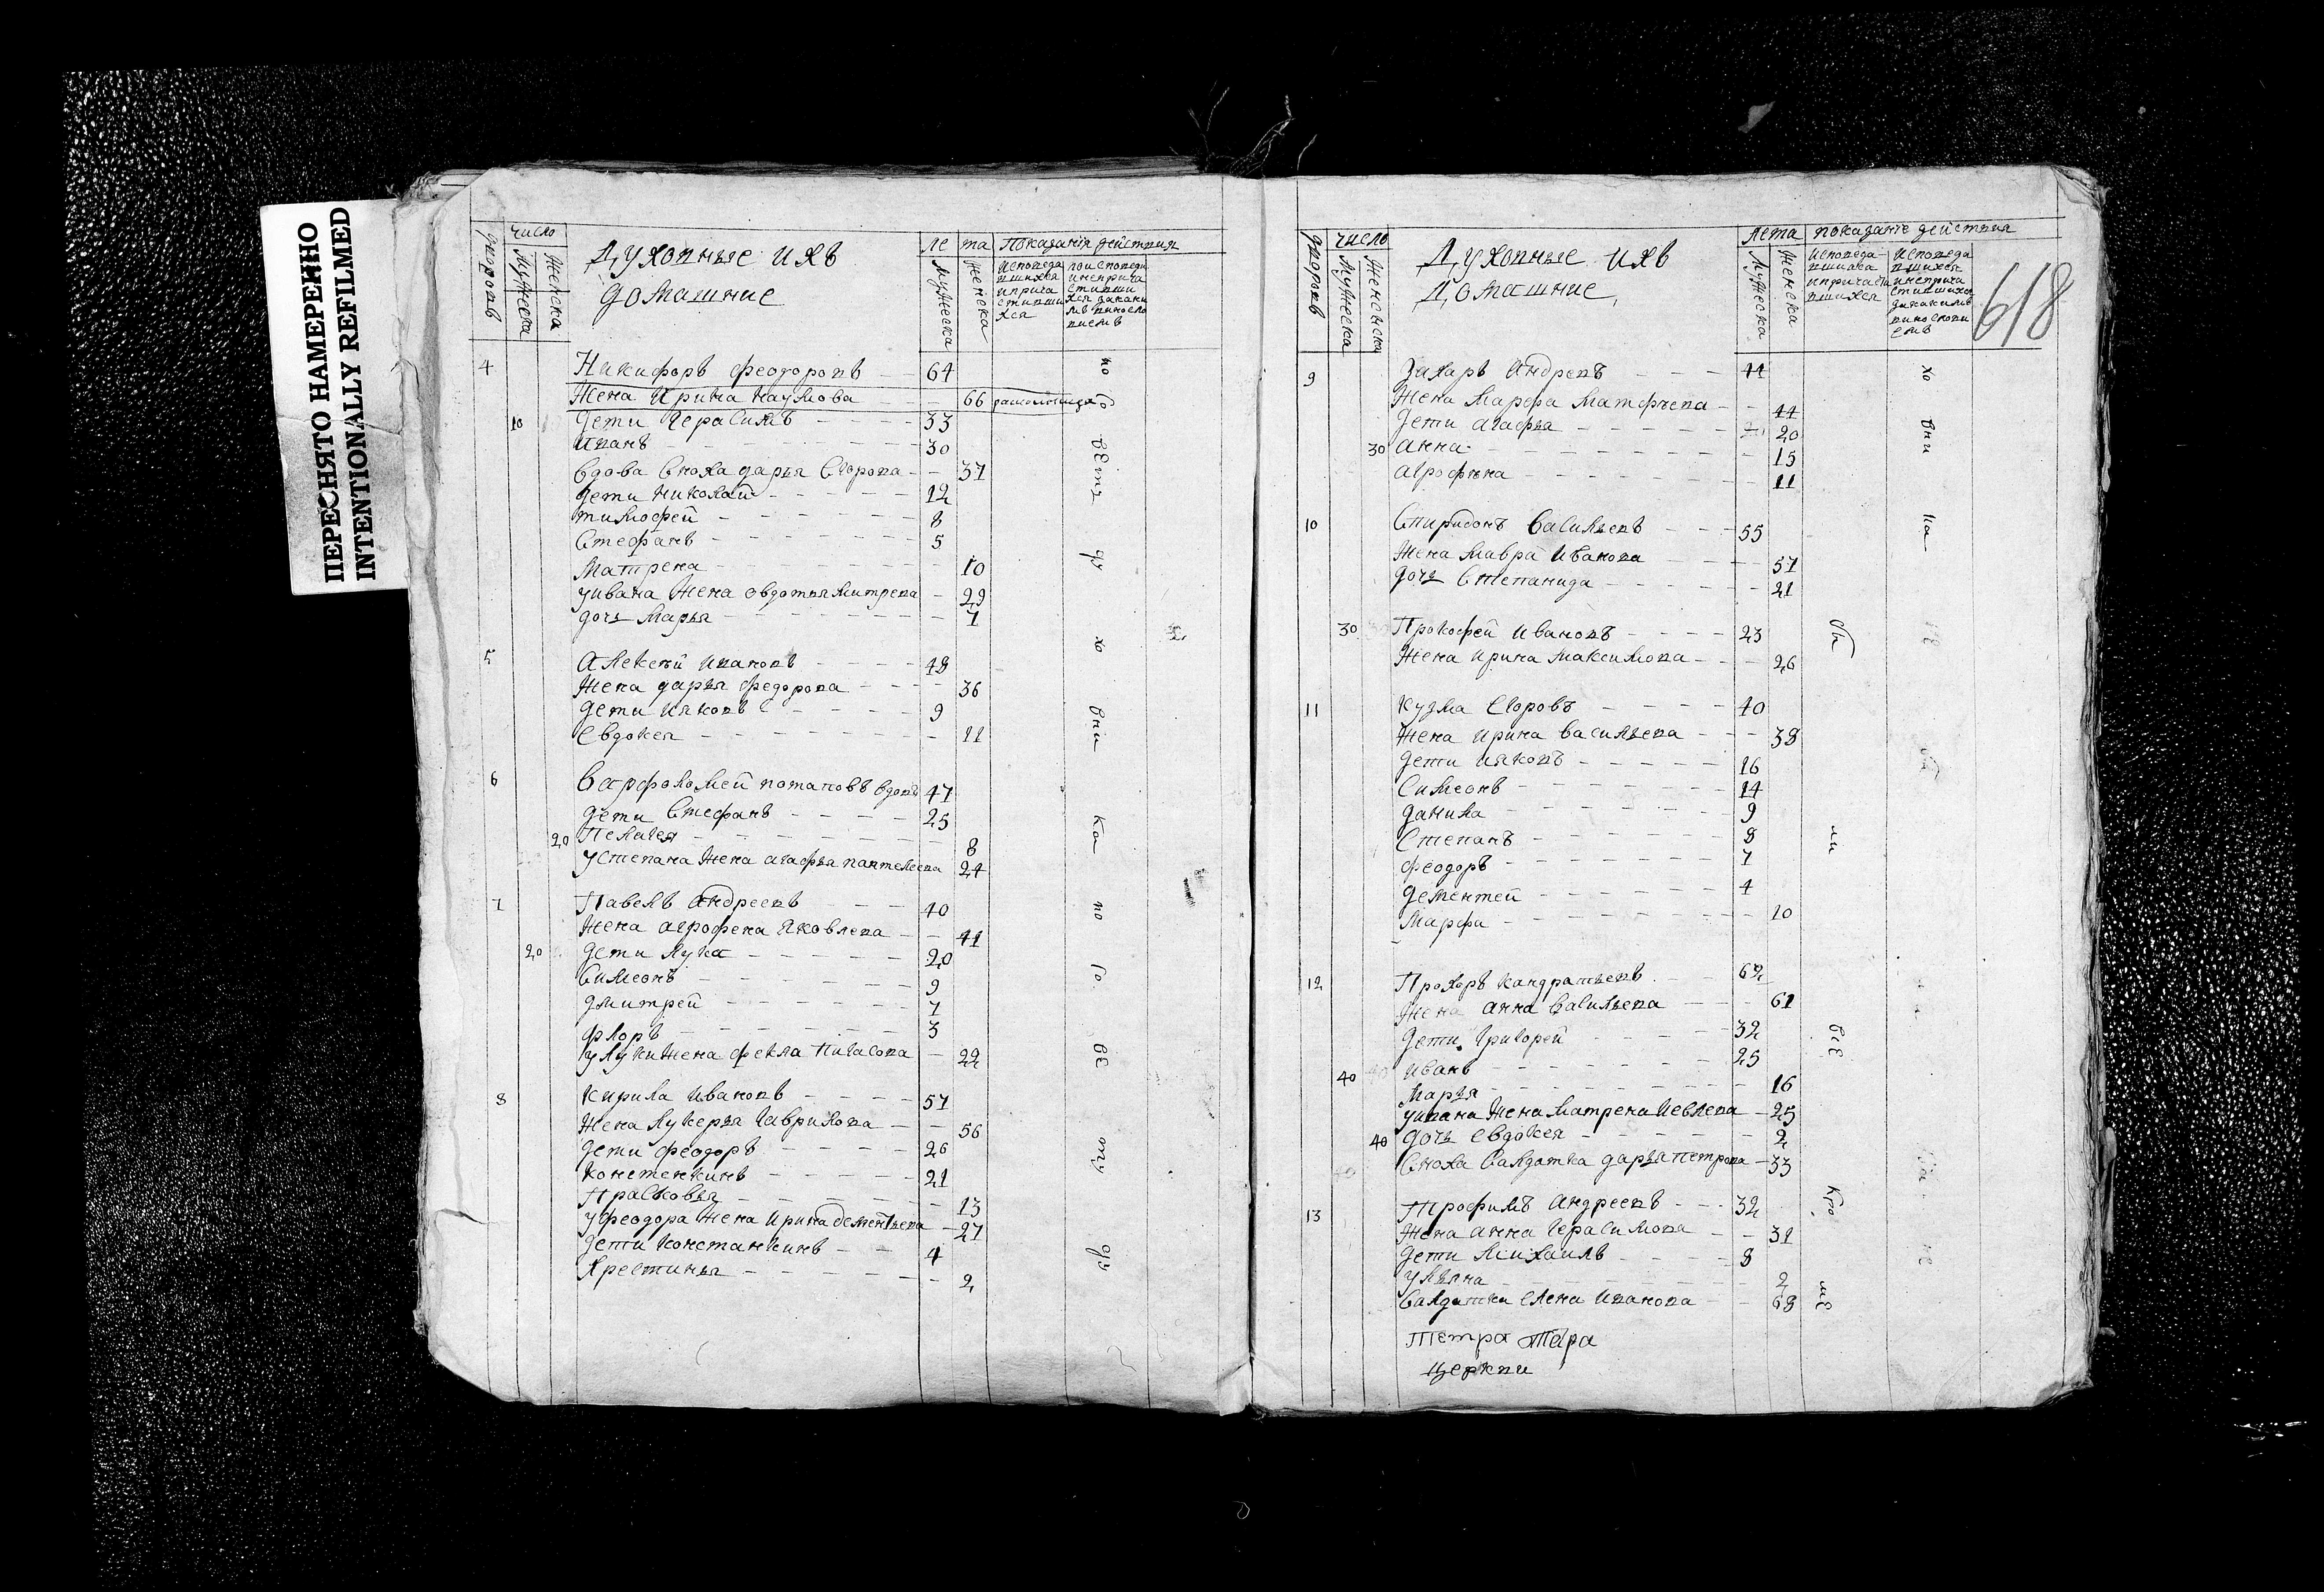 ПЕРЕСНЯТО НАМЕРЕННО
INTENTIONALLY REFILMED
дворовъ
число
мужеска
женска
Духовные ихъ
домашние
лета
мужеска
женска
Показания действия
4
Никифоръ Феодоровъ - 64
Жена Ирина Наумова - - 66
10 Дети Герасимъ - - - - 33
Иванъ - - - - - 30
Вдова Сноха дарья Егорова - - 37
дети Николай - - - - - 12
тимофей - - - - - 8
Стефанъ - - - - - 5
Матрена - - - - - 10
уивана жена овдотья митрева - 29
дочь Марья - - - - - 7
5
Алексей Ивановъ - - - - 48
Жена дарья федорова - - - 36
дети Ияковъ - - - - - 9
Евдокея - - - - - 11
6
Варфоломей потаповъ вдовъ 47
дети Стефанъ - - - - 25
20 Пелагея - - - - - 8
устепана жена агафья пантелеева 24
7
Павелъ Андреевъ - - - 40
Жена агрофена Яковлева - - 41
20 дети лука - - - - - 20
Симеонъ - - - - - 9
дмитрей - - - - - 7
флоръ - - - - - 3
улуки жена фекла Пигасова - 22
8
Кирила Ивановъ - - - - 57
Жена лукерья гаврилова - - 56
дети феодоръ - - - - 26
Констенкинъ - - - - 21
Прасковья - - - - - 13
уфеодора жена Ирина дементьева - 27
дети Константинъ - - 4
Хрестинья - - - - - 2
дворовъ
число
мужеска
женьска
Духовные ихъ
Домашние
Лета
мужеска
женска
показание действия
618
9
Захаръ Андревъ - - - 44
Жена марфа матфеева - - 44
дети агафья - - - - - 20
30 анна - - - - - 15
агрофена - - - - - 11
10
Спиридонъ Васильевъ - - - 55
Жена мавра Иванова - - - 57
дочь Степанида - - - - 21
30 Прокофей Ивановъ - - - - 23
Жена Ирина максимова - - - 26
11
Кузма Егоровъ - - - - 40
Жена Ирина васильева - - - 38
дети Ияковъ - - - - - 16
Симеонъ - - - - - 14
данила - - - - - 9
Степанъ - - - - - 8
феодоръ - - - - - 7
дементей - - - - - 4
Марфа - - - - - 10
12
Прохоръ Кандратьевъ - - 62
Жена анна Васильева - - - 61
дети Григорей - - - 32
40 Иванъ - - - - - 25
Марья - - - - - 16
уивана жена матрена Иевлева - 25
40 дочь Евдокея - - - - - 2
Сноха Салдатка дарья петрова - 33
13
Трофимъ Андреевъ - - - 32
Жена анна Герасимова - - 31
дети михаилъ - - - - 8
ульяна - - - - - 2
Салдатка елена Иванова - - 68
церкви